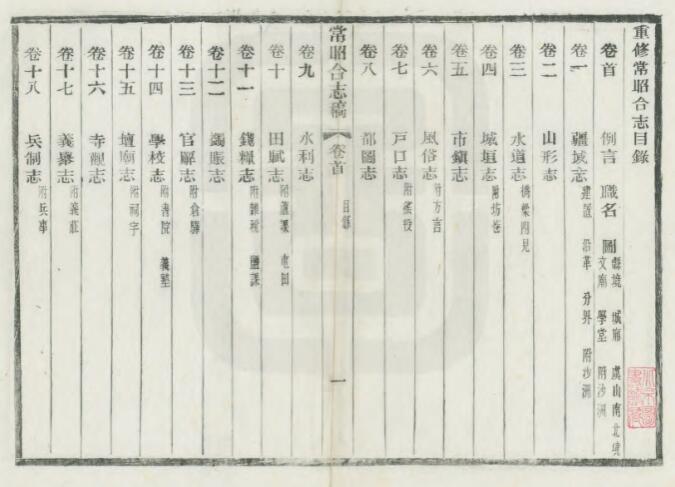 重修常昭合志目錄
卷首 例言 職名 圖 縣境 城廂 虞山南北境 文廟 學堂 附沙洲
卷一 疆域志 建置 沿革 分界 附沙洲
卷二 山形志
卷三 水道志 橋梁附見
卷四 城垣志 附坊巷
卷五 市鎮志
卷六 風俗志 附方言
卷七 戶口志 附徭役
卷八 都圖志
常昭合志稿 卷首 目錄 一
卷九 水利志
卷十 田賦志 附蘆課 屯田
卷十一 錢糧志 附雜稅 鹽課
卷十二 蠲賑志
卷十三 官廨志 附倉驛
卷十四 學校志 附書院 義塾
卷十五 壇廟志 附祠宇
卷十六 寺觀志
卷十七 義舉志 附義莊
卷十八 兵制志 附兵事